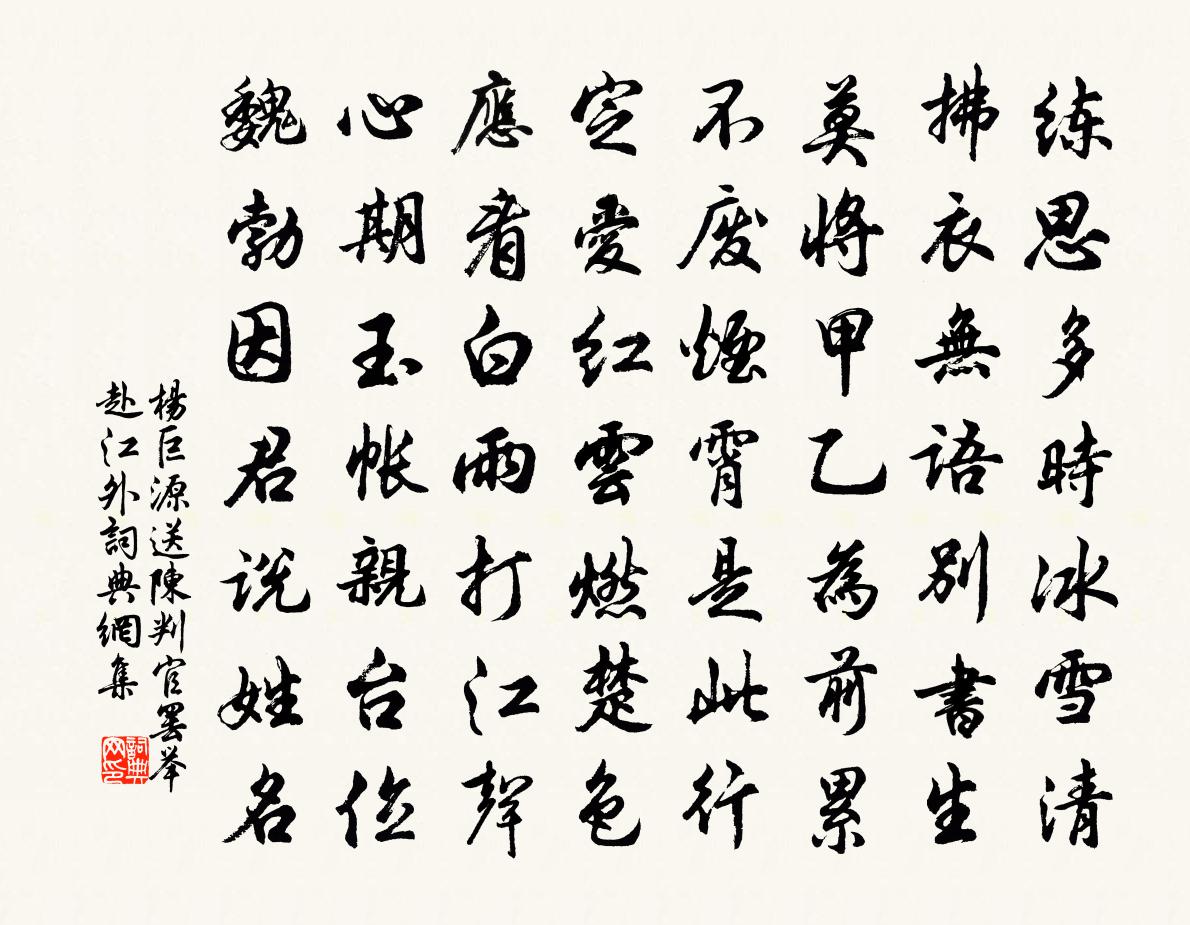 練思多時冰雪清
拂衣無語別書生
莫將甲乙為前累
不廢煙霄是此行
定愛紅雲燃楚色
應看白雨打江聲
心期玉帳親台位
魏勃因君說姓名
楊巨源送陳判官罷舉
赴江外詞典網集
詞典网印